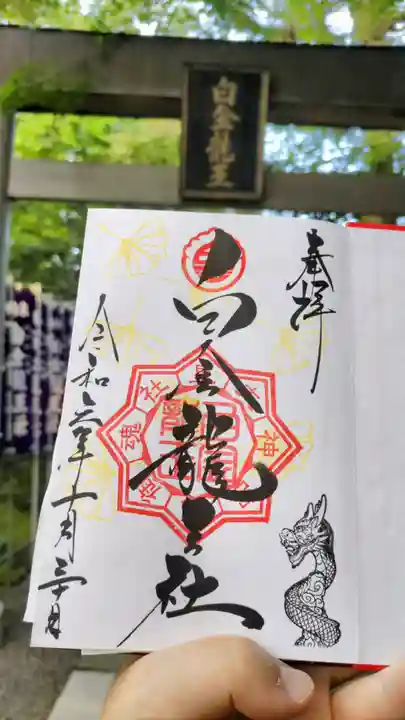 白金龍王
奉拝
白金龍王社
令和六年十一月三十日
神
魂